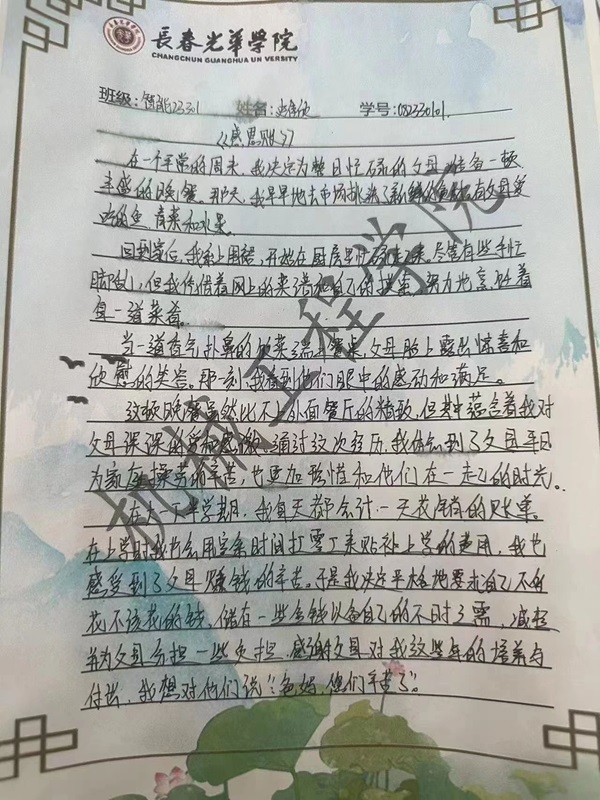 長春光華學院
CHANGCHUN GUANGHUA UN VERSITY
班级:智能23301 姓名: 学号:08233010１.
《感恩账》
在一个平常的周末,我决定为整日忙碌的父母准备一顿
丰盛的晚餐。那天,我早早地去市场挑选了新鲜的食材,有父母爱
吃的鱼、青菜和水果。
回到家后,我系上围裙,开始在厨房里忙碌起来。尽管有些手忙
脚乱,但我凭借着网上的菜谱和自己的摸索,努力地烹饪着
每一道菜肴。
当一道道香气扑鼻的饭菜端上餐桌,父母脸上露出惊喜和
欣慰的笑容。那一刻,我看到他们眼中的感动和满足。
这顿晚餐虽然比不上外面餐厅的精致,但其中蕴含着我对
父母深深的爱和感激。通过这次经历,我体会到了父母平日
为家庭操劳的辛苦,也更加珍惜和他们在一起的时光。
在大一下半学期,我每天都会计一天花销的账单。
在上学时我也会用空余时间打零工来贴补上学的费用,我也
感受到了父母赚钱的辛苦。于是我决定严格地要求自己不乱
花不该花的钱,储存一些金钱以备自己的不时之需,减轻
并为父母分担一些负担,感谢父母对我这些年的培养与
付出,我想对他们说“爸妈,您们辛苦了”。
机械工程学院